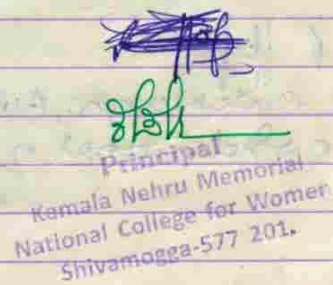 Principal
Kamala Nehru Memorial
National College for Women
Shivamogga-577 201.